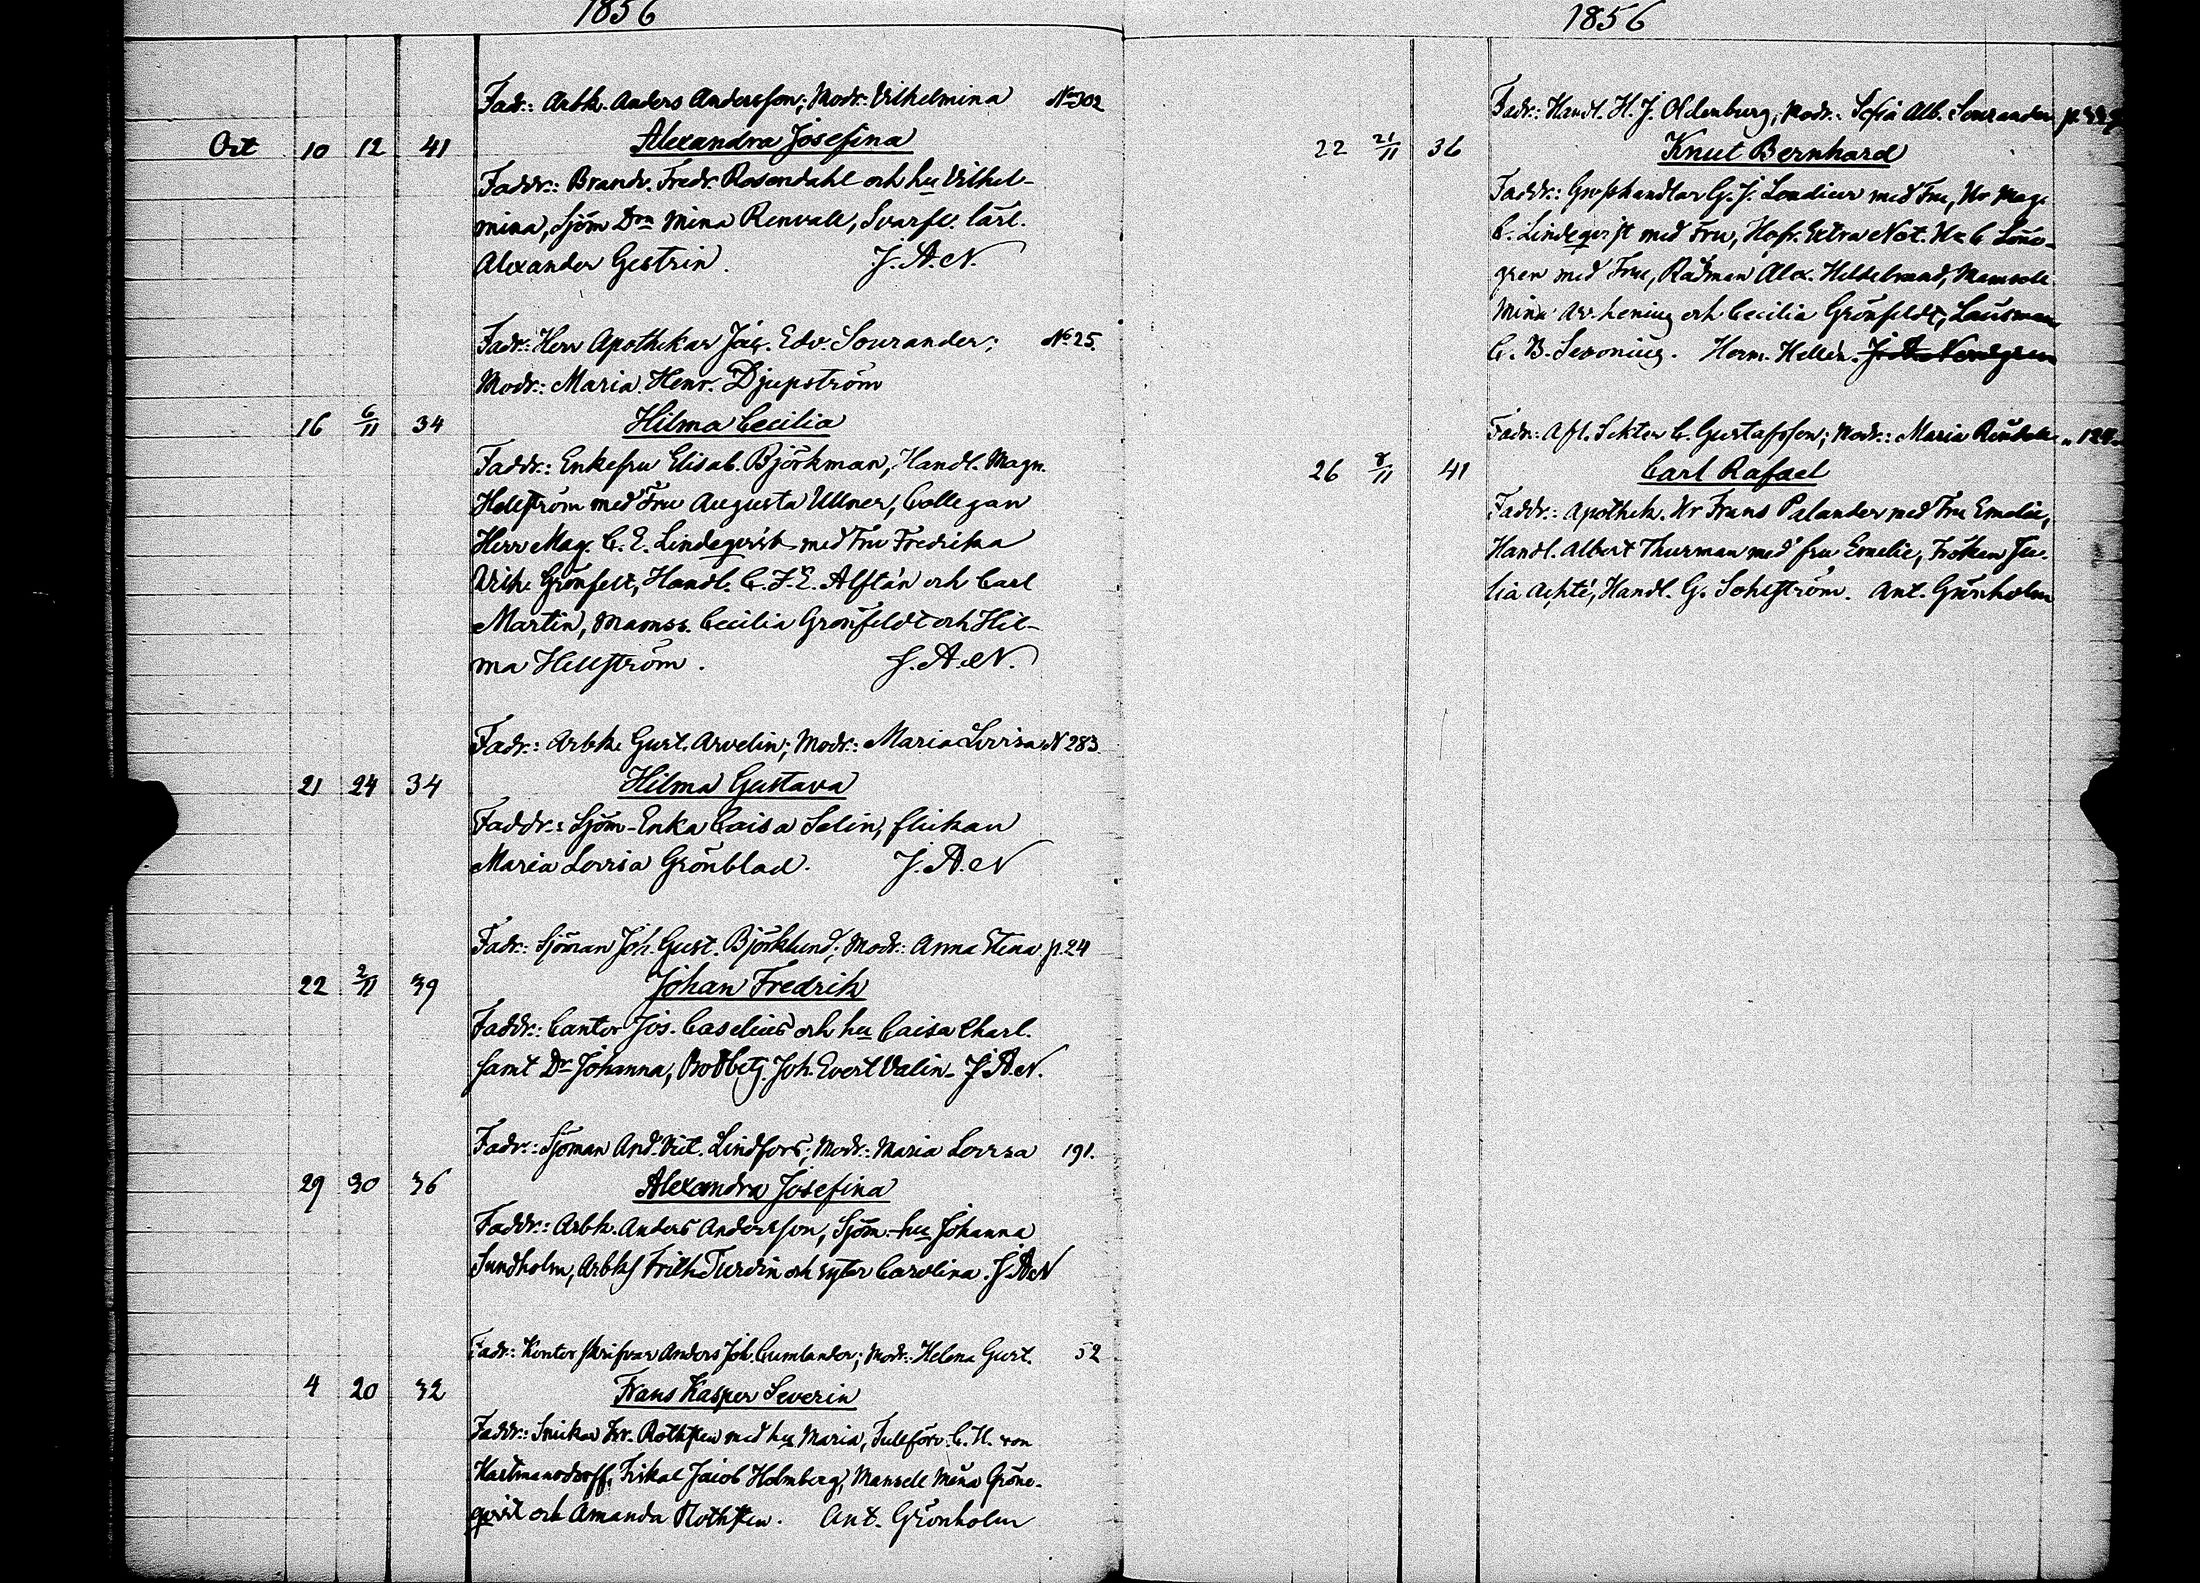 1856
Fadr: Arbk. Anders Andersson; Modr: Vilhelmina No 302
Oct 10 12 41 Alexandra Josefina
Faddr: Brandv. Fredr. Rosendahl och hu Vilhel-
mina, Sjöm Dtn Mina Renvall, Svarfv. lärl.
Alexander Gestrin. J. A. N.
Fadr: Herr Apothekar Jac. Edv. Sourander; No 25.
Modr: Maria Henr. Djupström
16 6/11 34 Hilma Cecilia
Faddr: Enkefru Elisab. Björkman, Handl. Magn.
Hellström med Fru Augusta Ullner, Collegan
Herr Mag. C. E. Lindeqvist med Fru Fredrika
Vilh. Grönfelt, Handl. C. F. E. Alftán och Carl
Martin, Mamss. Cecilia Grönfeldt och Hil-
ma Hellström. J. A. N.
Fadr: Arbk. Gust. Arvelin; Modr: Maria Lovisa N 283.
21 24 34 Hilma Gustava
Faddr: Sjöm-Enka Caisa Selin, flickan
Maria Lovisa Grönblad. J. A. N
Fadr: Sjöman Joh. Gust. Björklund; Modr: Anna Stina p. 24
22 2/11 39 Johan Fredrik
Faddr: Cantor Jos. Caselius och hu Caisa Charl.
samt Dr Johanna, Joh. Evert Valin. J. A. N.
Fadr: Sjöman And. Vict. Lindfors; Modr: Maria Lovisa 191.
29 30 36 Alexandra Josefina
Faddr: Arbk. Anders Andersson, Sjöm-hu Johanna
Sundholm, Arbk och syster Carolina. J. A. N
Fadr: Kontorskrifvar Anders Joh. Cumlander; Modr: Helena Gust. 52
4 20 32 Frans Kasper Severin
Faddr: Snickar Fr. Rothsten med hu Maria, Tullförv. C. H. von
Hartmansdorff, Fiskal Jacob Holmberg, Mamsell Mina Gröne-
qvist och Amanda Rothsten. Ant. Grönholm
1856
Fadr: Handl. H. J. Oldenburg; Modr: Sofia Alb. Sourander
22 21/11 36 Knut Bernhard
Faddr: Grosshandlar G. J. Londicer med Fru, Hr Mag.
C. Lindeqvist med Fru, Hofr. Extra Not. Hr C. Löne-
gren med Fru, Rådman Alex. Hildebrand, Mamsell.
Mina Arrhenius och Cecilia Grönfeldt, Länsman
C. B. Seronius. Herm. Hellén. J. A. Nordgren
Fadr: C. Gustafsson; Modr: Maria
26 8/11 41 Carl Rafael
Faddr: Apothek. Hr Frans Palander med Fru Emelie,
Handl. Albert Thurman med fru Emelie, Fröken Ju-
lia Achté, Handl. G. Sohlström. Ant. Grönholm